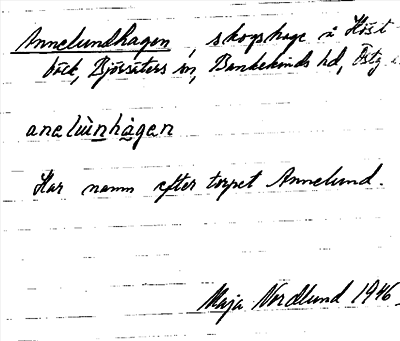 Annelundhagen, skogshage å Höst-
bäck, Björsäters sn, Bankekinds hd, Östg
anelùnhàgen
Har namn efter torpet Annelund.
Maja Nordlund 1946.